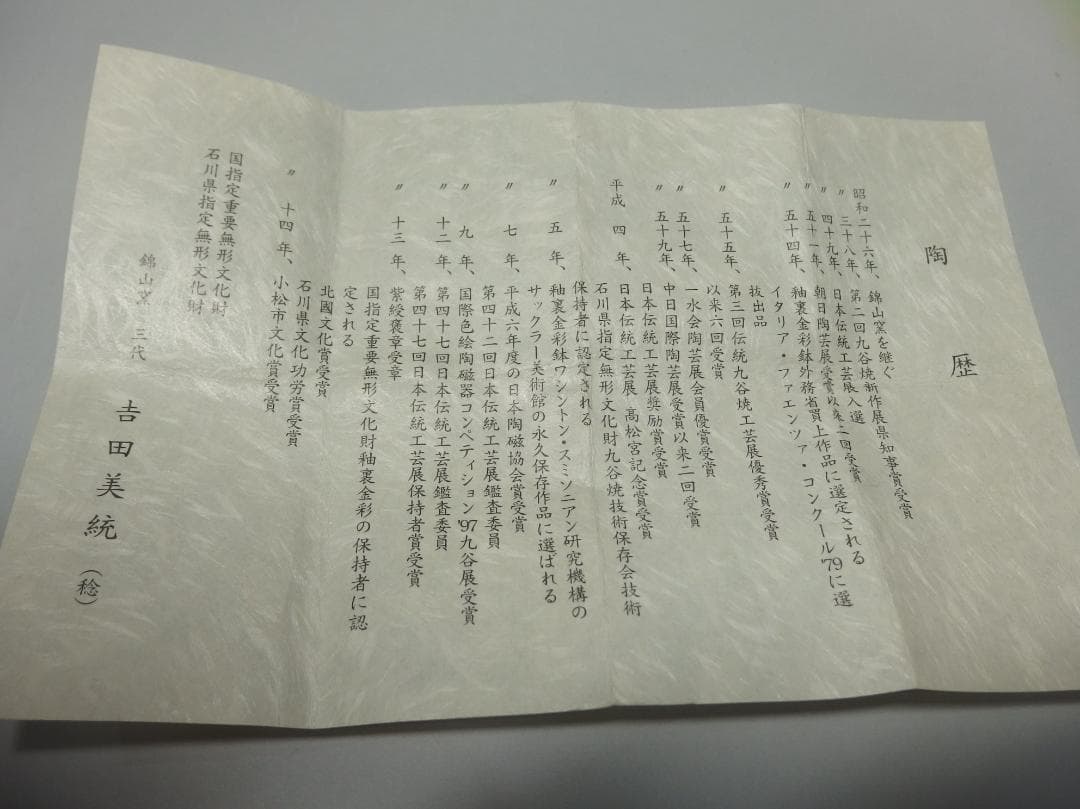 陶歴
昭和二十六年、錦山窯を継ぐ
第二回九谷焼新作展県知事賞受賞
〃三十八年、日本伝統工芸展入選
〃四十九年、朝日陶芸展受賞以来二回受賞
〃五十一年、釉裏金彩鉢外務省買上作品に選定される
〃五十四年、イタリア・ファエンツァ・コンクール'79に選
抜出品
第三回伝統九谷焼工芸展優秀賞受賞
〃五十五年、以来六回受賞
一水会陶芸展会員優賞受賞
〃五十七年、中日国際陶芸展受賞以来二回受賞
〃五十九年、日本伝統工芸展奨励賞受賞
日本伝統工芸展 高松宮記念賞受賞
平成四年、石川県指定無形文化財九谷焼技術保存会技術
保持者に認定される
〃五年、釉裏金彩鉢ワシントン・スミソニアン研究機構の
サックラー美術館の永久保存作品に選ばれる
〃七年、平成六年度の日本陶磁協会賞受賞
第四十二回日本伝統工芸展鑑査委員
〃九年、国際色絵陶磁器コンペティション'97九谷展受賞
〃十二年、第四十七回日本伝統工芸展鑑査委員
第四十七回日本伝統工芸展保持者賞受賞
〃十三年、紫綬褒章受章
国指定重要無形文化財釉裏金彩の保持者に認
定される
北國文化賞受賞
石川県文化功労賞受賞
〃十四年、小松市文化賞受賞
国指定重要無形文化財
石川県指定無形文化財
錦山窯 三代 吉田美統（稔）